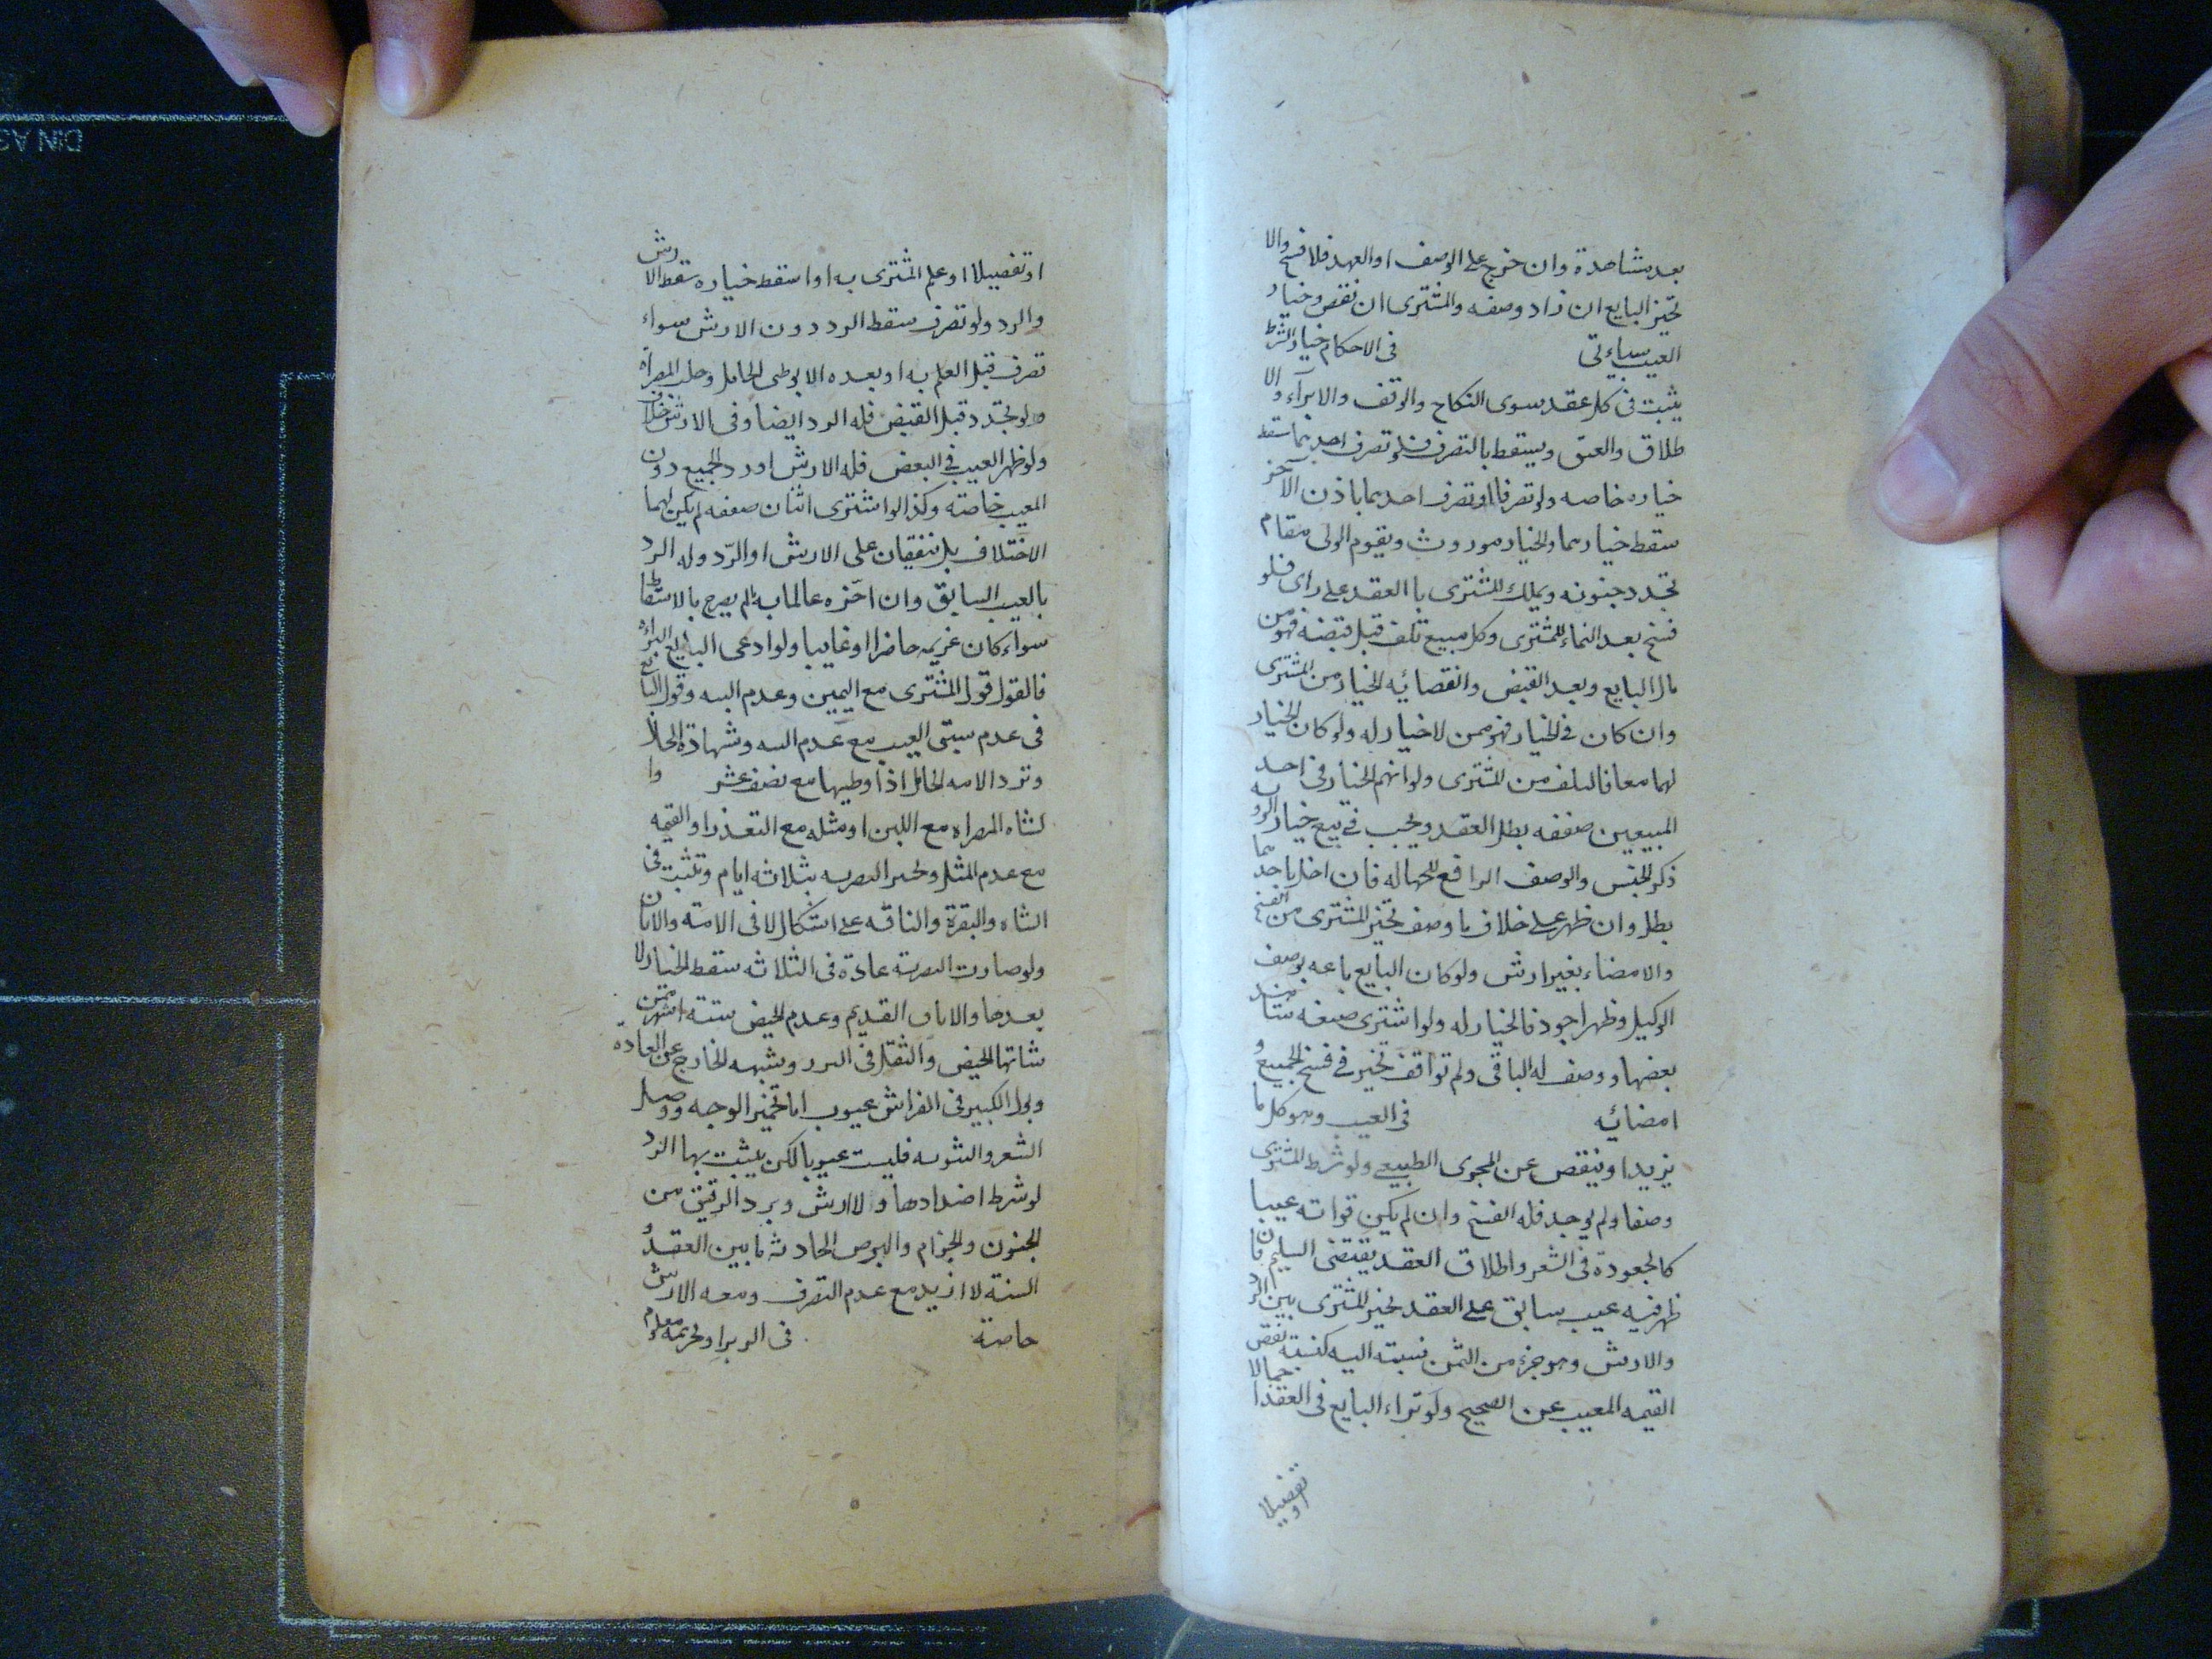 بعد مشاهدة وان خرج على الوصف او العهد فلا فسخ والا
تخير البايع ان زاد وصفه والمشترى ان نقص وخيار
العيب سياءتى في الاحكام خيار الشرط
يثبت فى كل عقد سوى النكاح والوقف والابرآء والا
طلاق والعتق ويسقط بالتصرف فلو تصرف احدهما سقط
خياره خاصه ولو تصرفا او تصرف احدهما باذن الآخر
سقط خيارهما والخيار موروث ويقوم الولى مقام
تجدد جنونه ويملك المشترى باالعقد على راى فلو
فسخ بعد النماء للمشترى وكل مبيع تلف قبل قبضه فهو من
مال البايع وبعد القبض وانقضائه الخيار من المشترى
وان كان فى الخيار فهو ممن لا خيار له ولو كان الخيار
لهما معا فالتلف من المشترى ولو ابهم الخيار فى احد
المبيعين صفقه بطل العقد ويجب فى بيع خيار الرويه
ذكر الجنس والوصف الرافع للجهاله فان اخل باحدهما
بطل وان ظهر على خلاف ما وصف تخير المشترى من الفسخ
والامضاء بغير ارش ولو كان البايع باعه بوصف
الوكيل وظهر اجود فالخيار له ولو اشترى ضيعه شاهد
بعضها ووصف له الباقى ولم توافق تخير فى فسخ الجميع و
امضائيه فى العيب وهو كل ما
يزيد او ينقص عن المجرى الطبيعى ولو شرط المشترى
وصفا ولم يوجد فله الفسخ وان لم يكن فواته عيبا
كالجعودة فى الشعر واطلاق العقد يقتضى السليم فان
ظهر فيه عيب سابق على العقد تخير المشترى بين الرد
والارش وهو جزء من الثمن نسبته اليه كنسبة نقص
القيمه المعيب عن الصحيح ولو تبراء البايع فى العقد اجمالا
او تفصيلا
او تفصيلا او علم المشترى به او اسقط خياره سقط الارش
والرد ولو تصرف سقط الرد دون الارش سواء
تصرف قبل العلم به او بعده الا بوطى الحامل وحلب المصراة
ولو تجدد قبل القبض فله الرد ايضا وفى الارش خلاف
ولو ظهر العيب فى البعض فله الارش او رد الجميع دون
المعيب خاصته وكذا لو اشترى اثنان صفقه لم يكن لهما
الاختلاف بل يتفقان على الارش او الرّد وله الرد
بالعيب السابق وان اخّره عالما به ما لم يصرح بالاسقاط
سواء كان غريمه حاضرا او غايبا ولو ادعى البايع البراءه
فالقول قول المشترى مع اليمين وعدم البينه وقول البايع
فى عدم سبق العيب مع عدم البينه وشهادة الحال
وترد الامه الحامل اذا وطيها مع نصف عشر وا
لشاه المصراه مع اللبن او مثله مع التعذر او القيمه
مع عدم المثل وتختبر التصريه بثلاثه ايام وتثبت فى
الشاه والبقرة والناقه على اشكال لا فى الامته والاتان
ولو صارت التصريه عادة فى الثلاثه سقط الخيار لا
بعدها والاباق القديم وعدم الحيض سته اشهر ممن
شانها الحيض والثقل فى البزر وشبهه الخارج عن العادة
وبول الكبير فى الفراش عيوب اما تحمير الوجه ووصل
الشعر والثيوبه فليست عيوبا لكن يثبت بها الرد
لو شرط اضدادها ولا ارش ويرد الرقيق من
الجنون والجزام والبرص الحادثه ما بين العقد و
السنة لا ازيد مع عدم التصرف ومعه الارش
خاصة فى الربوا وتحريمه معلوم